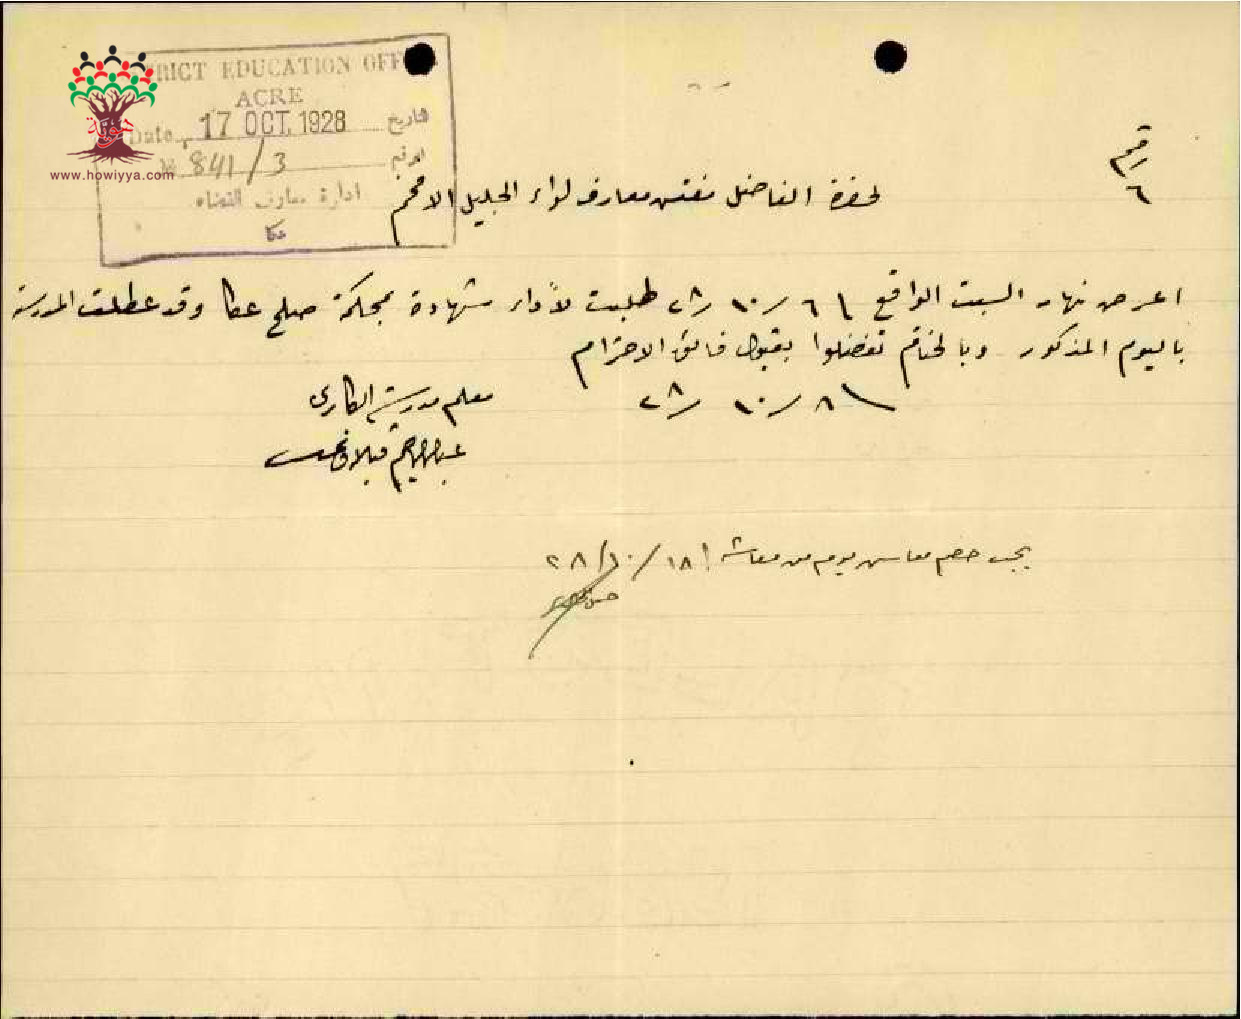 DISTRICT EDUCATION OFFICE
ACRE
Date 17 OCT. 1928 تاريخ
№ 841/3 الرقم
ادارة معارف القضاء
عكا
هوية
www.howiyya.com
رقم
٦
لحضرة الفاضل مفتش معارف لواء الجليل الافخم
اعرض نهار السبت الواقع ٦ / ١٠ / ٢٨ طلبت لأداء شهادة بمحكمة صلح عكا وقد عطلت المدرسة
باليوم المذكور وبالختام تفضلوا بقبول فائق الاحترام
٨ / ١٠ / ٢٨
معلم مدرسة
يجب خصم معاش يوم من معاشه ١٨/١٠/٢٨